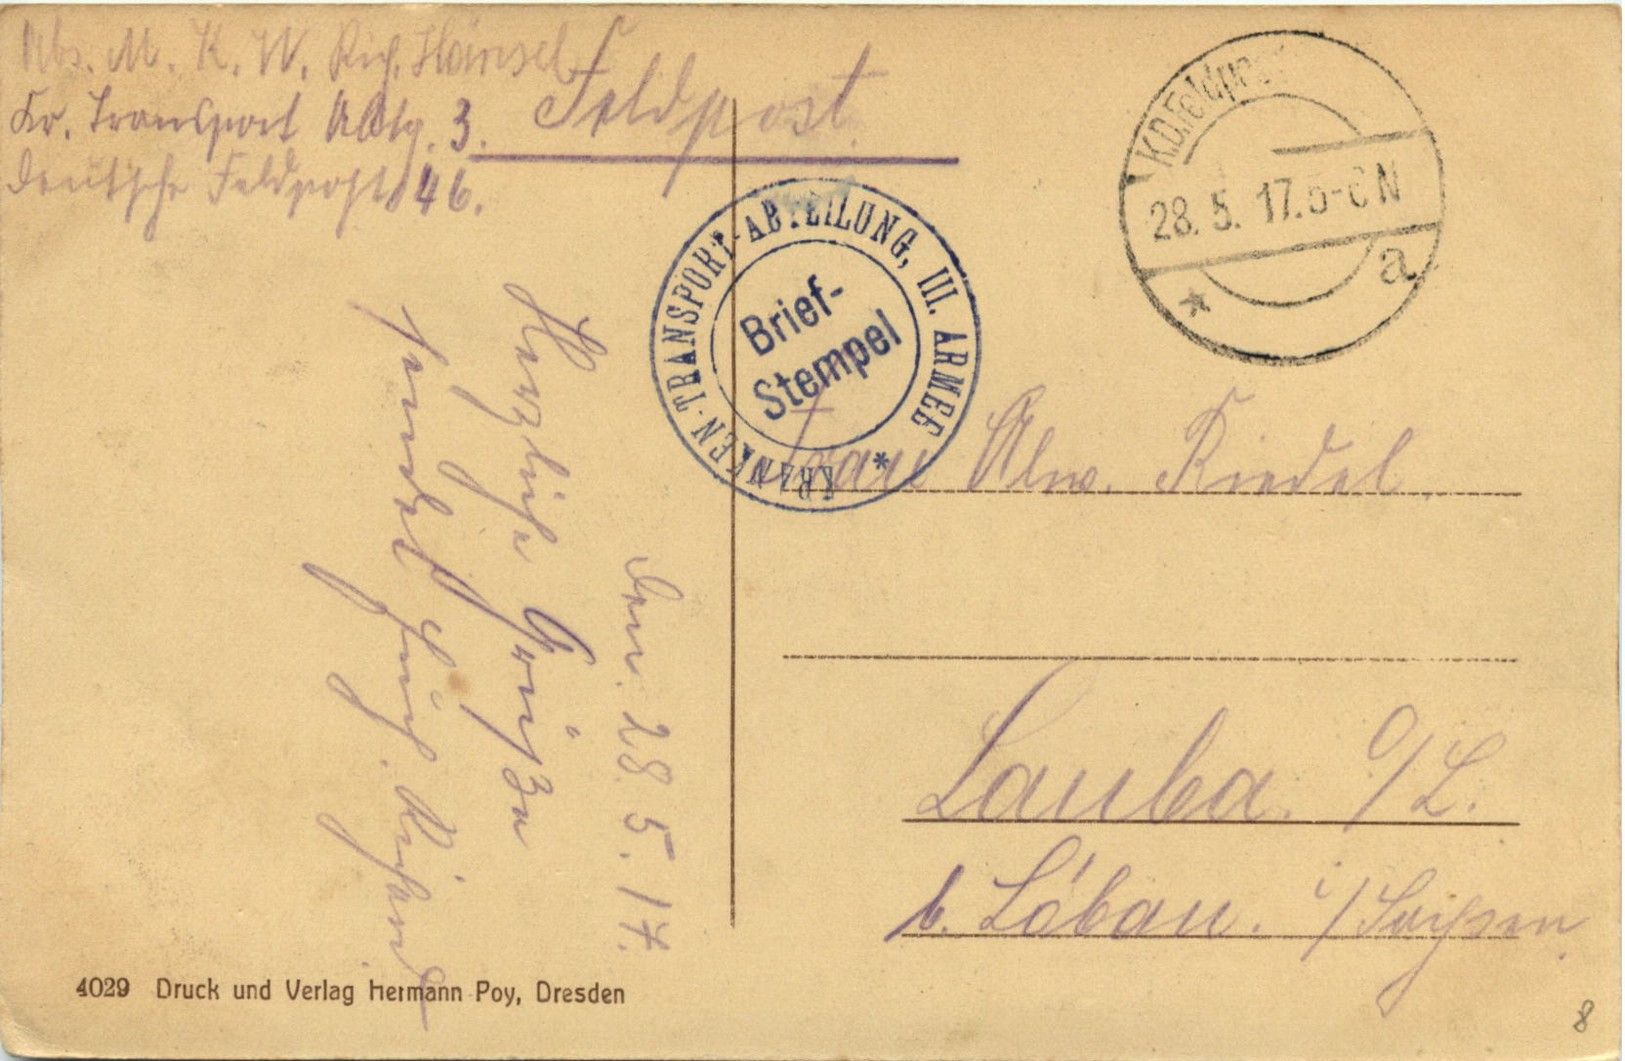 Abs. M. K. W. Rich. Hänsel
Kr. Transport Abtlg. 3.
Deutsche Feldpost 46.
Feldpost.
K.D. Feldpost
28. 5. 17. 5-6 N
* a
KRANKEN-TRANSPORT-ABTEILUNG, III. ARMEE *
Brief-
Stempel
Den. 28. 5. 17.
Herzliche Grüße
sendet Euch. Richard
Frau Alw. Riedel.
Lauba. O/L.
b. Löbau. i/Sachsen.
4029 Druck und Verlag Hermann Poy, Dresden
8